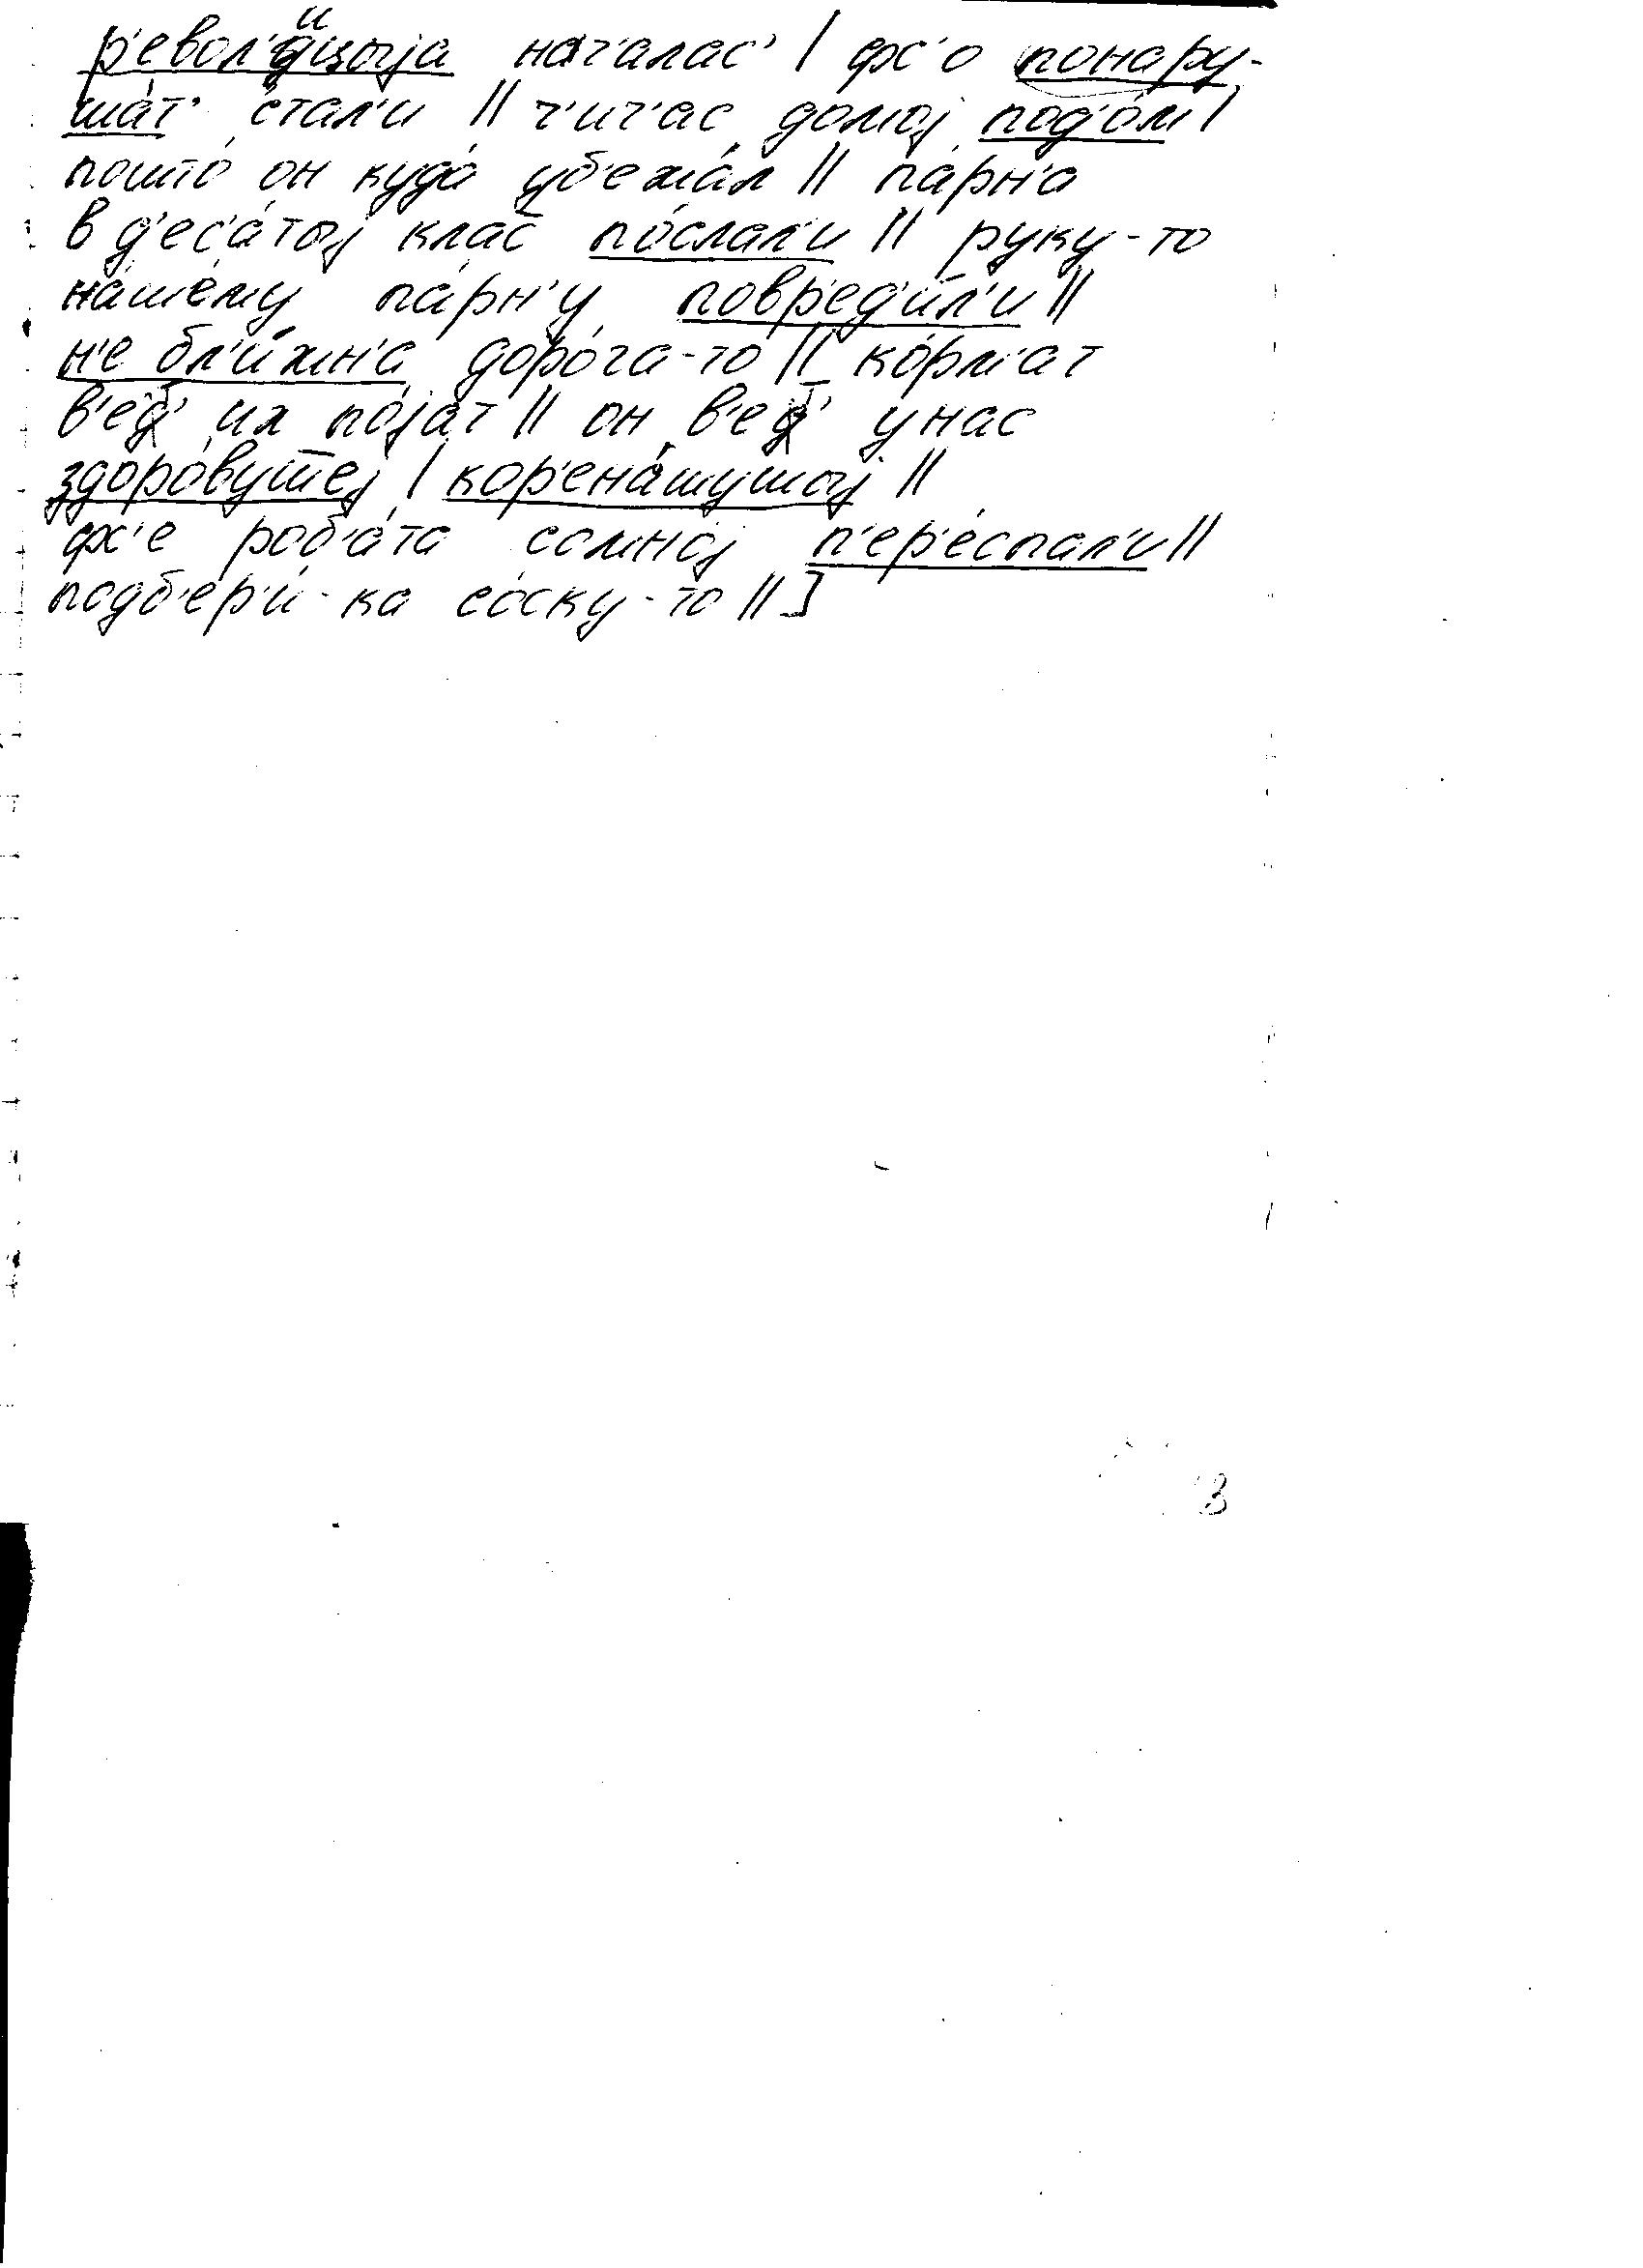 р'евол'и́цыја нач'алас' | фс'о понару-
шат' стал'и || ч'ич'ас домој под'о́м |
пошто́ он куда́ уб'ежа́л || па́рн'а
в д'ес'а́тој клас по́слал'и || руку-то
на́шему па́рн'у повр'ед'и́л'и ||
н'е бл'и́жн'а доро́га-то || ко́рм'ат
в'ед' их појат || он в'ед' у нас
здорову́шеј | кор'ена́шушој ||
фс'е роб'а́та сомној п'ер'е́спал'и ||
подб'ер'и́-ка со́ску-то || ]
3